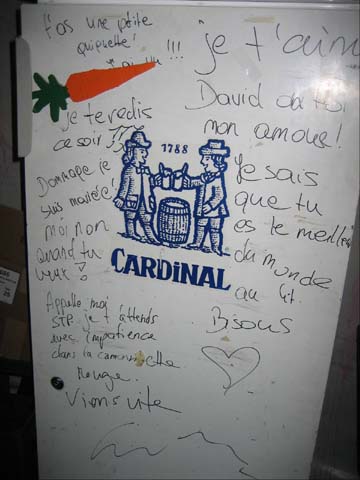 t'as une ptite
quiquette!
!!!
je t'aim
David
mon amour!
je te redis
ce soir
1788
Dommage je
suis mariée!
moi non
quand tu
veux!
CARDINAL
Je sais
que tu
es le meilleur
du monde
au lit.
Bisous
Appelle moi
STP. je t'attends
avec impatience
dans la camionette
Rouge.
Viens vite